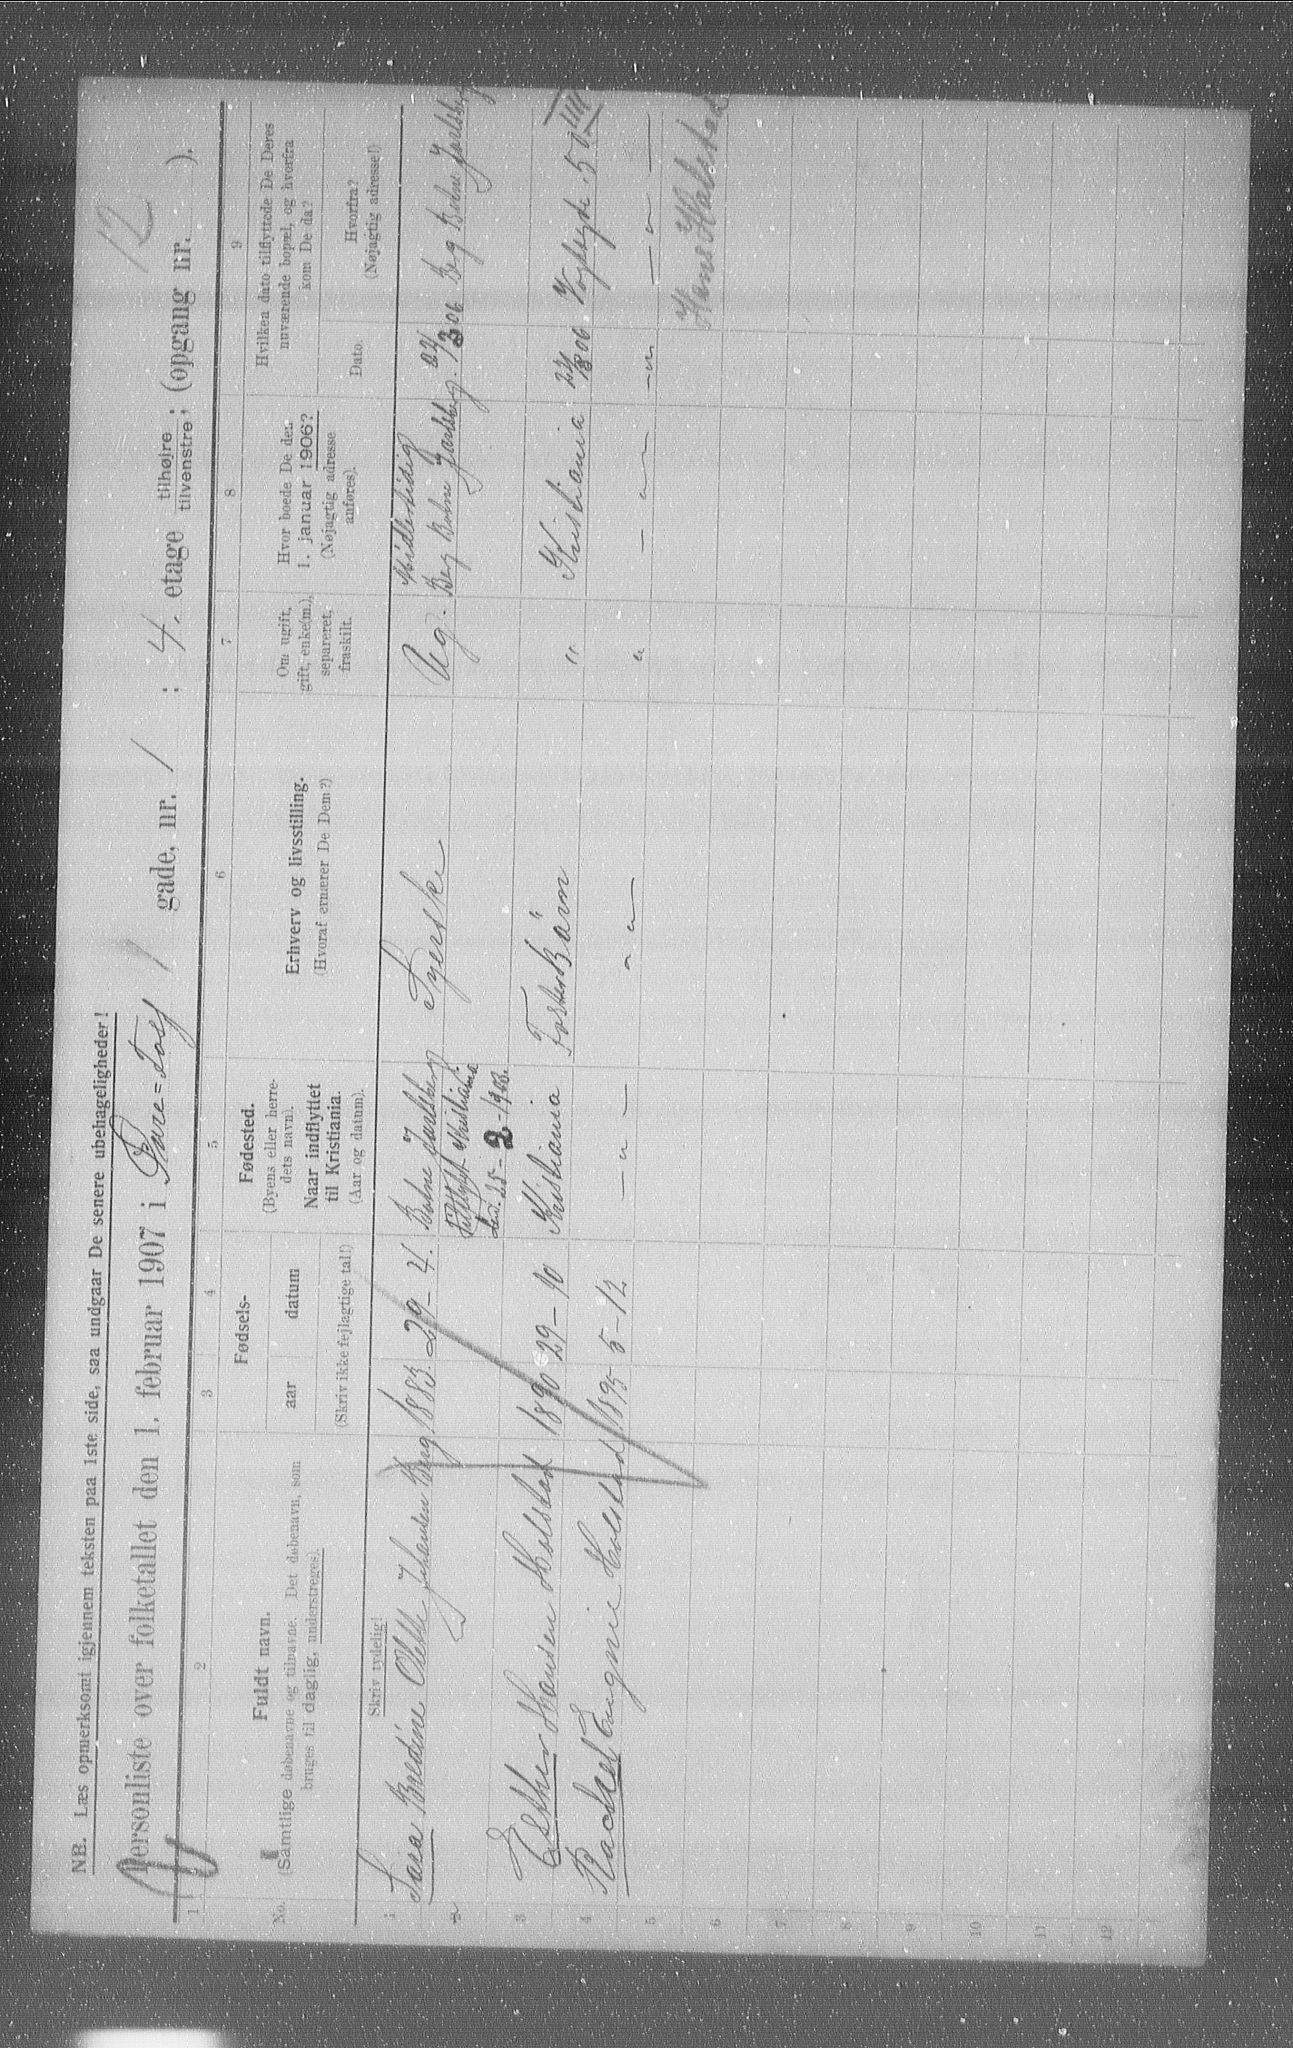 NB. Læs opmerksomt igjennem teksten paa 1ste side, saa undgaar De senere ubehageligheder!
12
Personliste over folketallet den 1. februar 1907 i gade, nr. 1 : 4. etage tilhøjre, tilvenstre; (opgang nr. ).
1 2 3 4 5 6 7 8 9
No.
Fuldt navn.
(Samtlige døbenavne og tilnavne. Det døbenavn, som
bruges til daglig, understreges).
Skriv tydelig!
Fødsels-
aar datum
(Skriv ikke fejlagtige tal!)
Fødested.
(Byens eller herre-
dets navn).
Naar indflyttet
til Kristiania.
(Aar og datum).
Erhverv og livsstilling.
(Hvoraf ernærer De Dem?)
Om ugift,
gift, enke(m.),
separeret,
fraskilt.
Hvor boede De den
1. januar 1906?
(Nøjagtig adresse
anføres).
Hvilken dato tilflyttede De Deres
nuværende bopæl, og hvorfra
kom De da?
Dato.
Hvorfra?
(Nøjagtig adresse!)
1 Sara Bredine Olette Johansen Berg 1883. 29-4. Botne Jarlsberg Syerske Ug. Midlertidig
2 Tilflyttet Kristiania Berg Botne Jarlsberg. 06 Berg Botne Jarlsberg
den. 25-2-1903.
3 Esther Hansen Holstad 1890 29-10 Kristiania Fosterbarn " Kristiania 06 50 III
4 Rachel Eugenie Holstad 1895 5-12 — " — " " " — " — — " — — " —
5 Hans Halstad
6
7
8
9
10
11
12